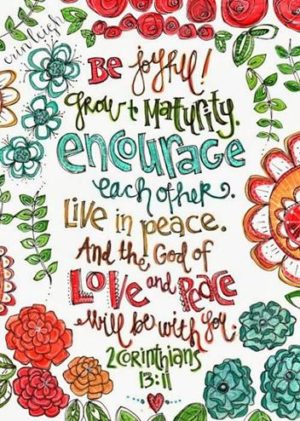 erin leigh
Be joyful!
Grow to Maturity.
encourage
each other.
Live in peace.
And the God of
LOVE and Peace
will be with you.
2 Corinthians
13:11